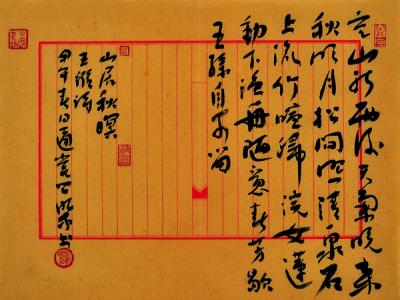 空山新雨後天氣晚来
秋明月松間照清泉石
上流竹喧歸浣女蓮
動下漁舟随意春芳歇
王孫自可留
山居秋暝
王維诗
甲午春日